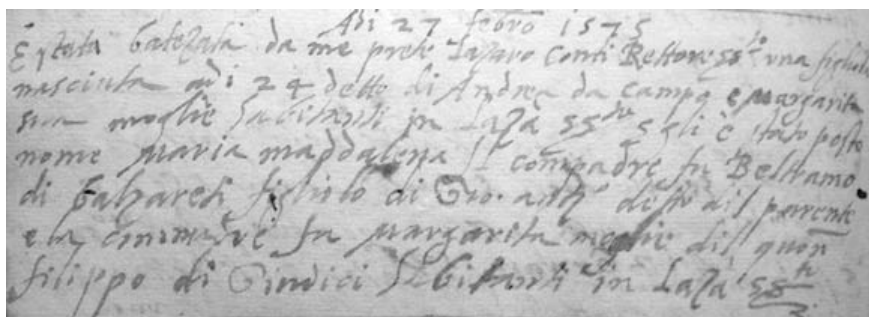 Adi 27 febrō 1575
È stata batezata da me prete Lazaro Conti Rettore ss.to una figliola
nasciuta adi 24 detto di Andrea da Campo e Margarita
sua moglie habitanti in Lazà ss.to e gli è stato posto
nome Maria Maddalena Il compadre fu Beltramo
di figliolo di Gio. ant.o detto dil parente
e la commadre fu Margarita moglie dil quon
filippo di Giudici habitanti in Lazà ss.ti